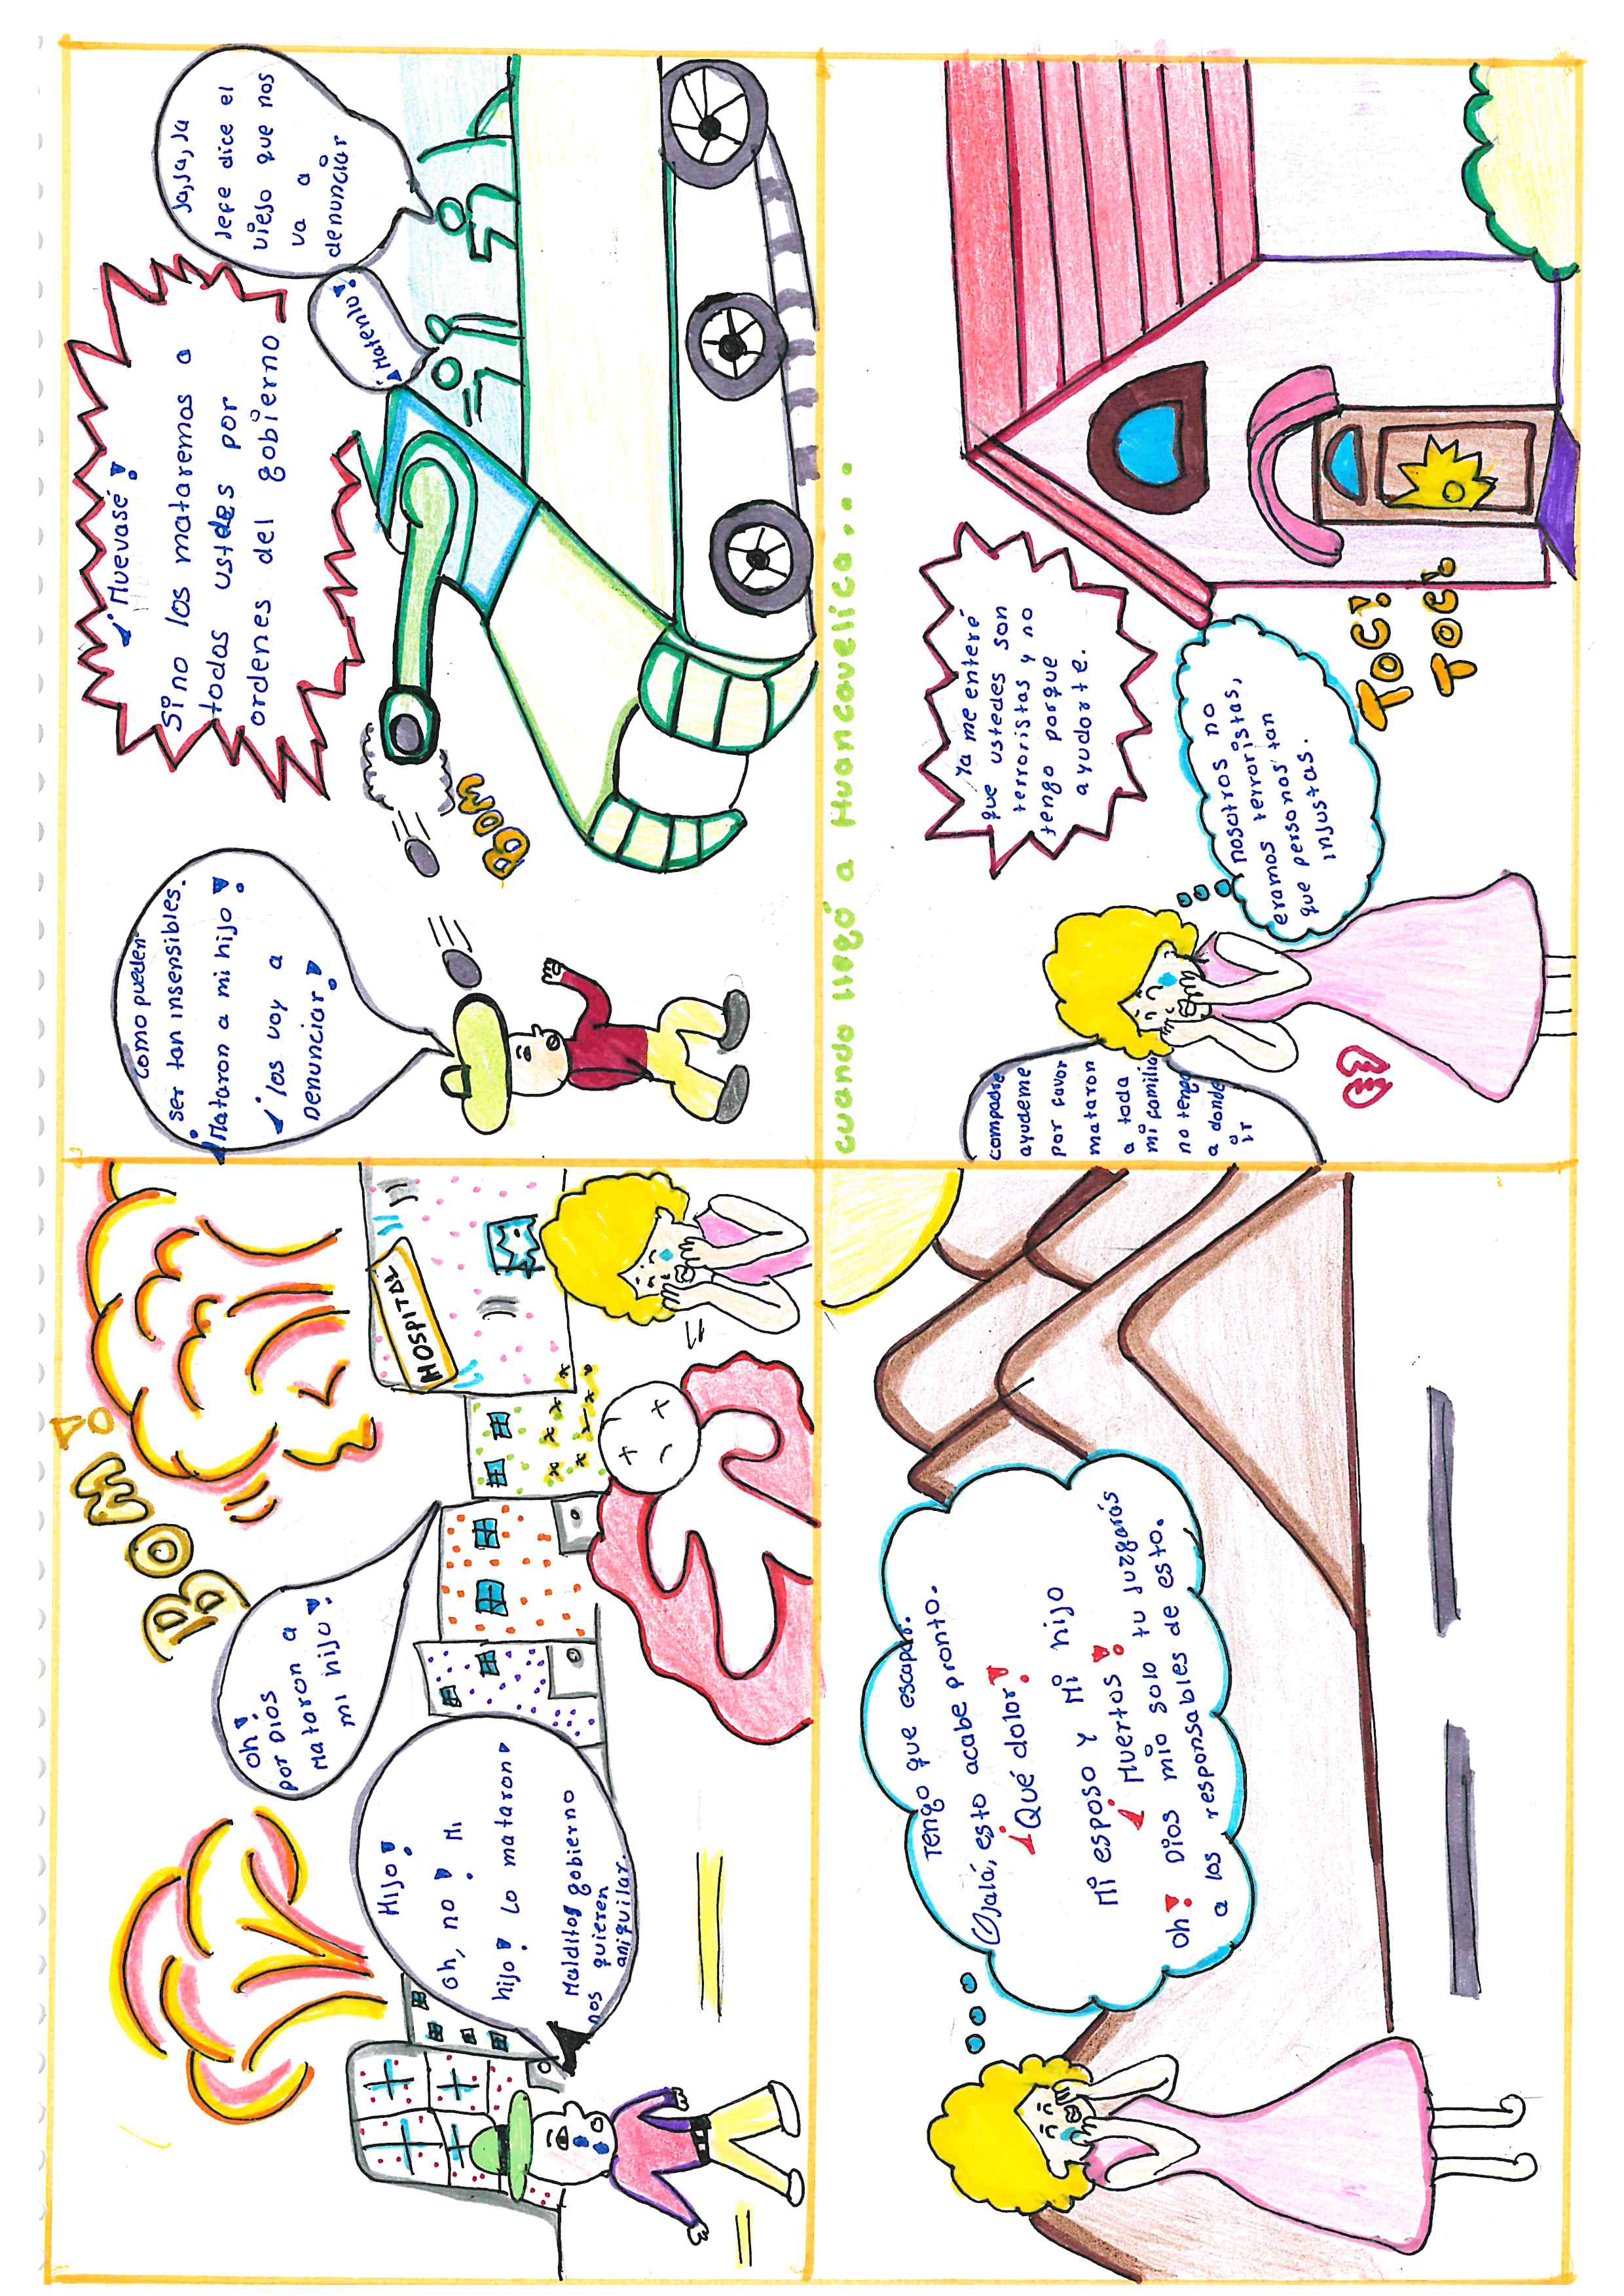 BOM!
Hijo!
oh, no! Mi
hijo! Lo mataron!
Malditos gobierno
nos quieren
aniquilar.
oh!
por Dios
Mataron a
mi hijo!
HOSPITAL
Como pueden
ser tan insensibles.
¡Mataron a mi hijo!
¡los voy a
Denunciar!
BOM
¡Muevasé!
Si no los mataremos a
todos ustdes por
ordenes del gobierno
¡Matenlo!
Ja, Ja, Ja
Jefe dice el
viejo que nos
va a
denunciar
Tengo que escapar.
Ojalá, esto acabe pronto.
¡Qué dolor!
Mi esposo y Mi hijo
¡Muertos!
Oh! Dios mio solo tu Juzgarás
a los responsables de esto.
cuando llegó a Huancavelica...
compadre
ayudeme
por favor
mataron
a toda
mi familia
no tengo
a donde
ir
Ya me enteré
que ustedes son
terroristas y no
tengo porque
ayudarte.
nosotros no
eramos terroristas,
que personas tan
injustas.
TOC!
TOC!